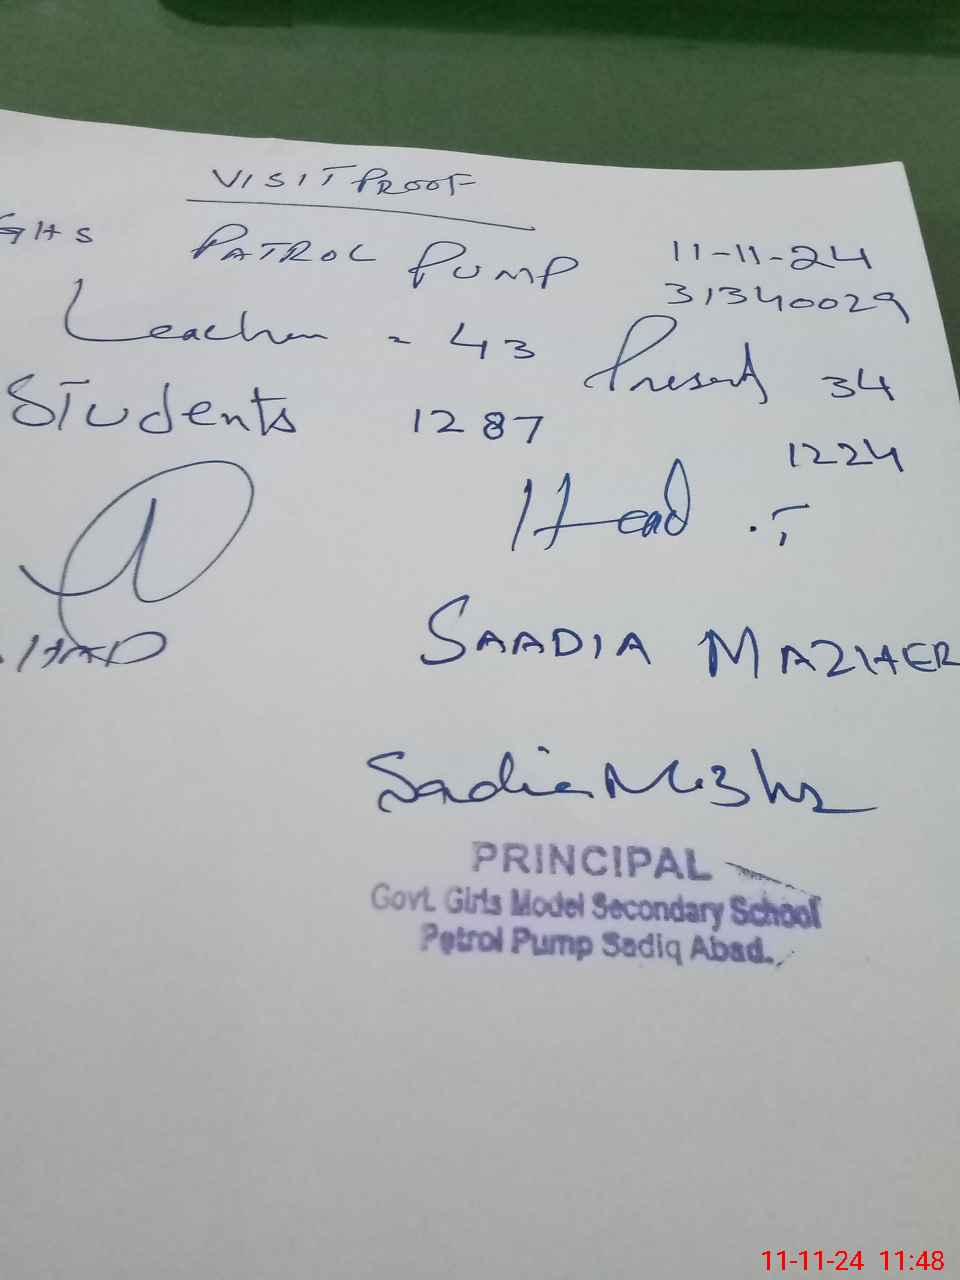 VISIT PROOF
GHS PATROL PUMP 11-11-24
31340029
Teacher = 43 Present 34
Students 1287 1224
Head :-
SAADIA MAZHER
Sadia Mazhr
PRINCIPAL
Govt. Girls Model Secondary School
Petrol Pump Sadiq Abad.
11-11-24 11:48